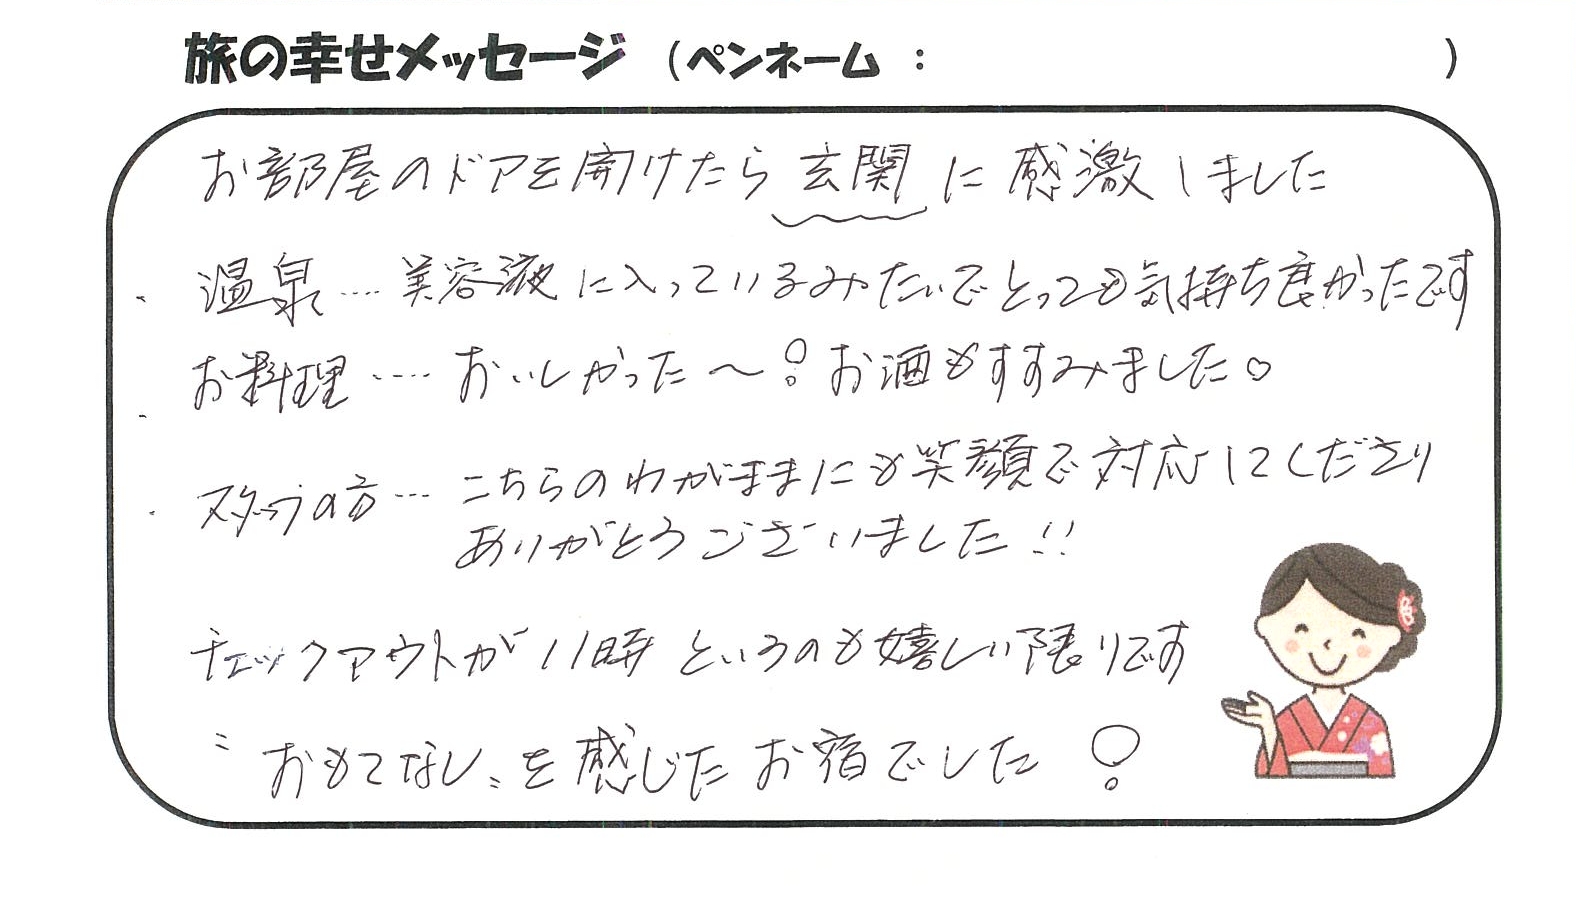 旅の幸せメッセージ （ペンネーム：　　　　　）
お部屋のドアを開けたら玄関に感激しました
・温泉…. 美容液に入っているみたいでとっても気持ち良かったです
・お料理….. おいしかった～！お酒もすすみました♡
・スタッフの方… こちらのわがままにも笑顔で対応してくださり
ありがとうございました!!
チェックアウトが11時というのも嬉しい限りです
〝おもてなし〟を感じたお宿でした！